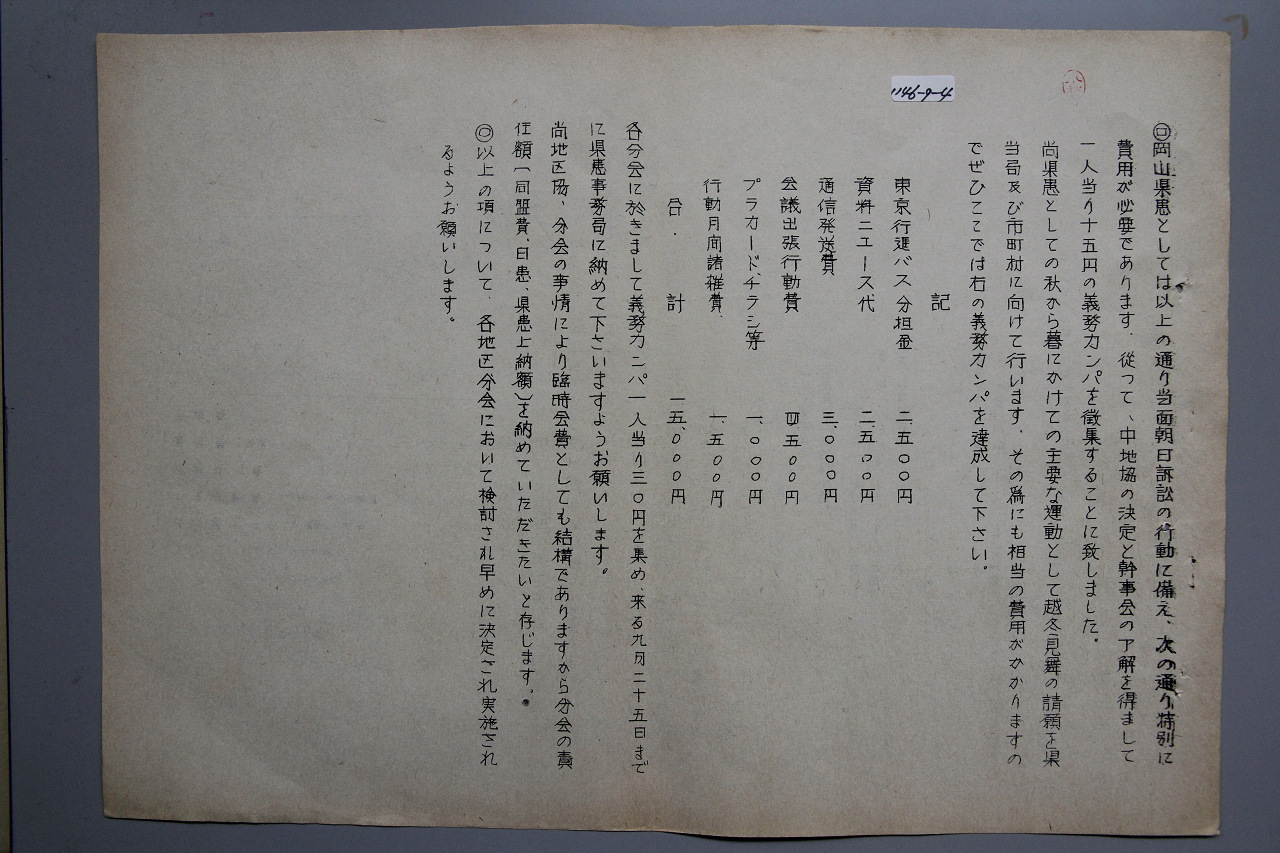 1146-9-4
◎岡山県患としては以上の通り当面朝日訴訟の行動に備え、次の通り特別に
費用が必要であります、従って、中地協の決定と幹事会の了解を得まして
一人当り十五円の義務カンパを徴集することに致しました。
尚県患としての秋から暮にかけての主要な運動として越冬見舞の請願を県
当局及び市町村に向けて行います、その為にも相当の費用がかかりますの
でぜひここでは右の義務カンパを達成して下さい。
記
東京行進バス分担金 二、五〇〇円
資料ニュース代 二、五〇〇円
通信発送費 三、〇〇〇円
会議出張行動費 四、五〇〇円
プラカード、チラシ等 一、〇〇〇円
行動月間諸雑費、 一、五〇〇円
合・計 一五、〇〇〇円
各分会に於きまして義務カンパ一人当り三〇円を集め、来る九月二十五日まで
に県患事務局に納めて下さいますようお願いします。
尚地区協、分会の事情により臨時会費としても結構でありますから分会の責
任額(同盟費、日患、県患上納額)を納めていただきたいと存じます。
◎以上の項について、各地区分会において検討され早めに決定され実施され
るようお願いします。